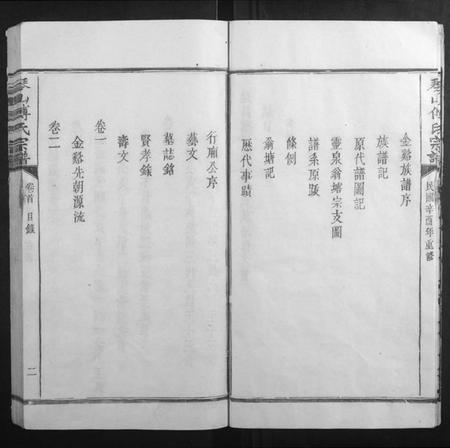 琴山傅氏宗譜
民國辛酉年重修
金谿族譜序
族譜記
原代譜圖記
靈泉翁塘宗支圖
譜系原跋
條例
翁塘記
歷代事蹟
行廟公序
藝文
墓誌銘
賢孝錄
壽文
卷一
金谿先朝源流
卷二
琴山傅氏宗譜
卷首 目錄
二